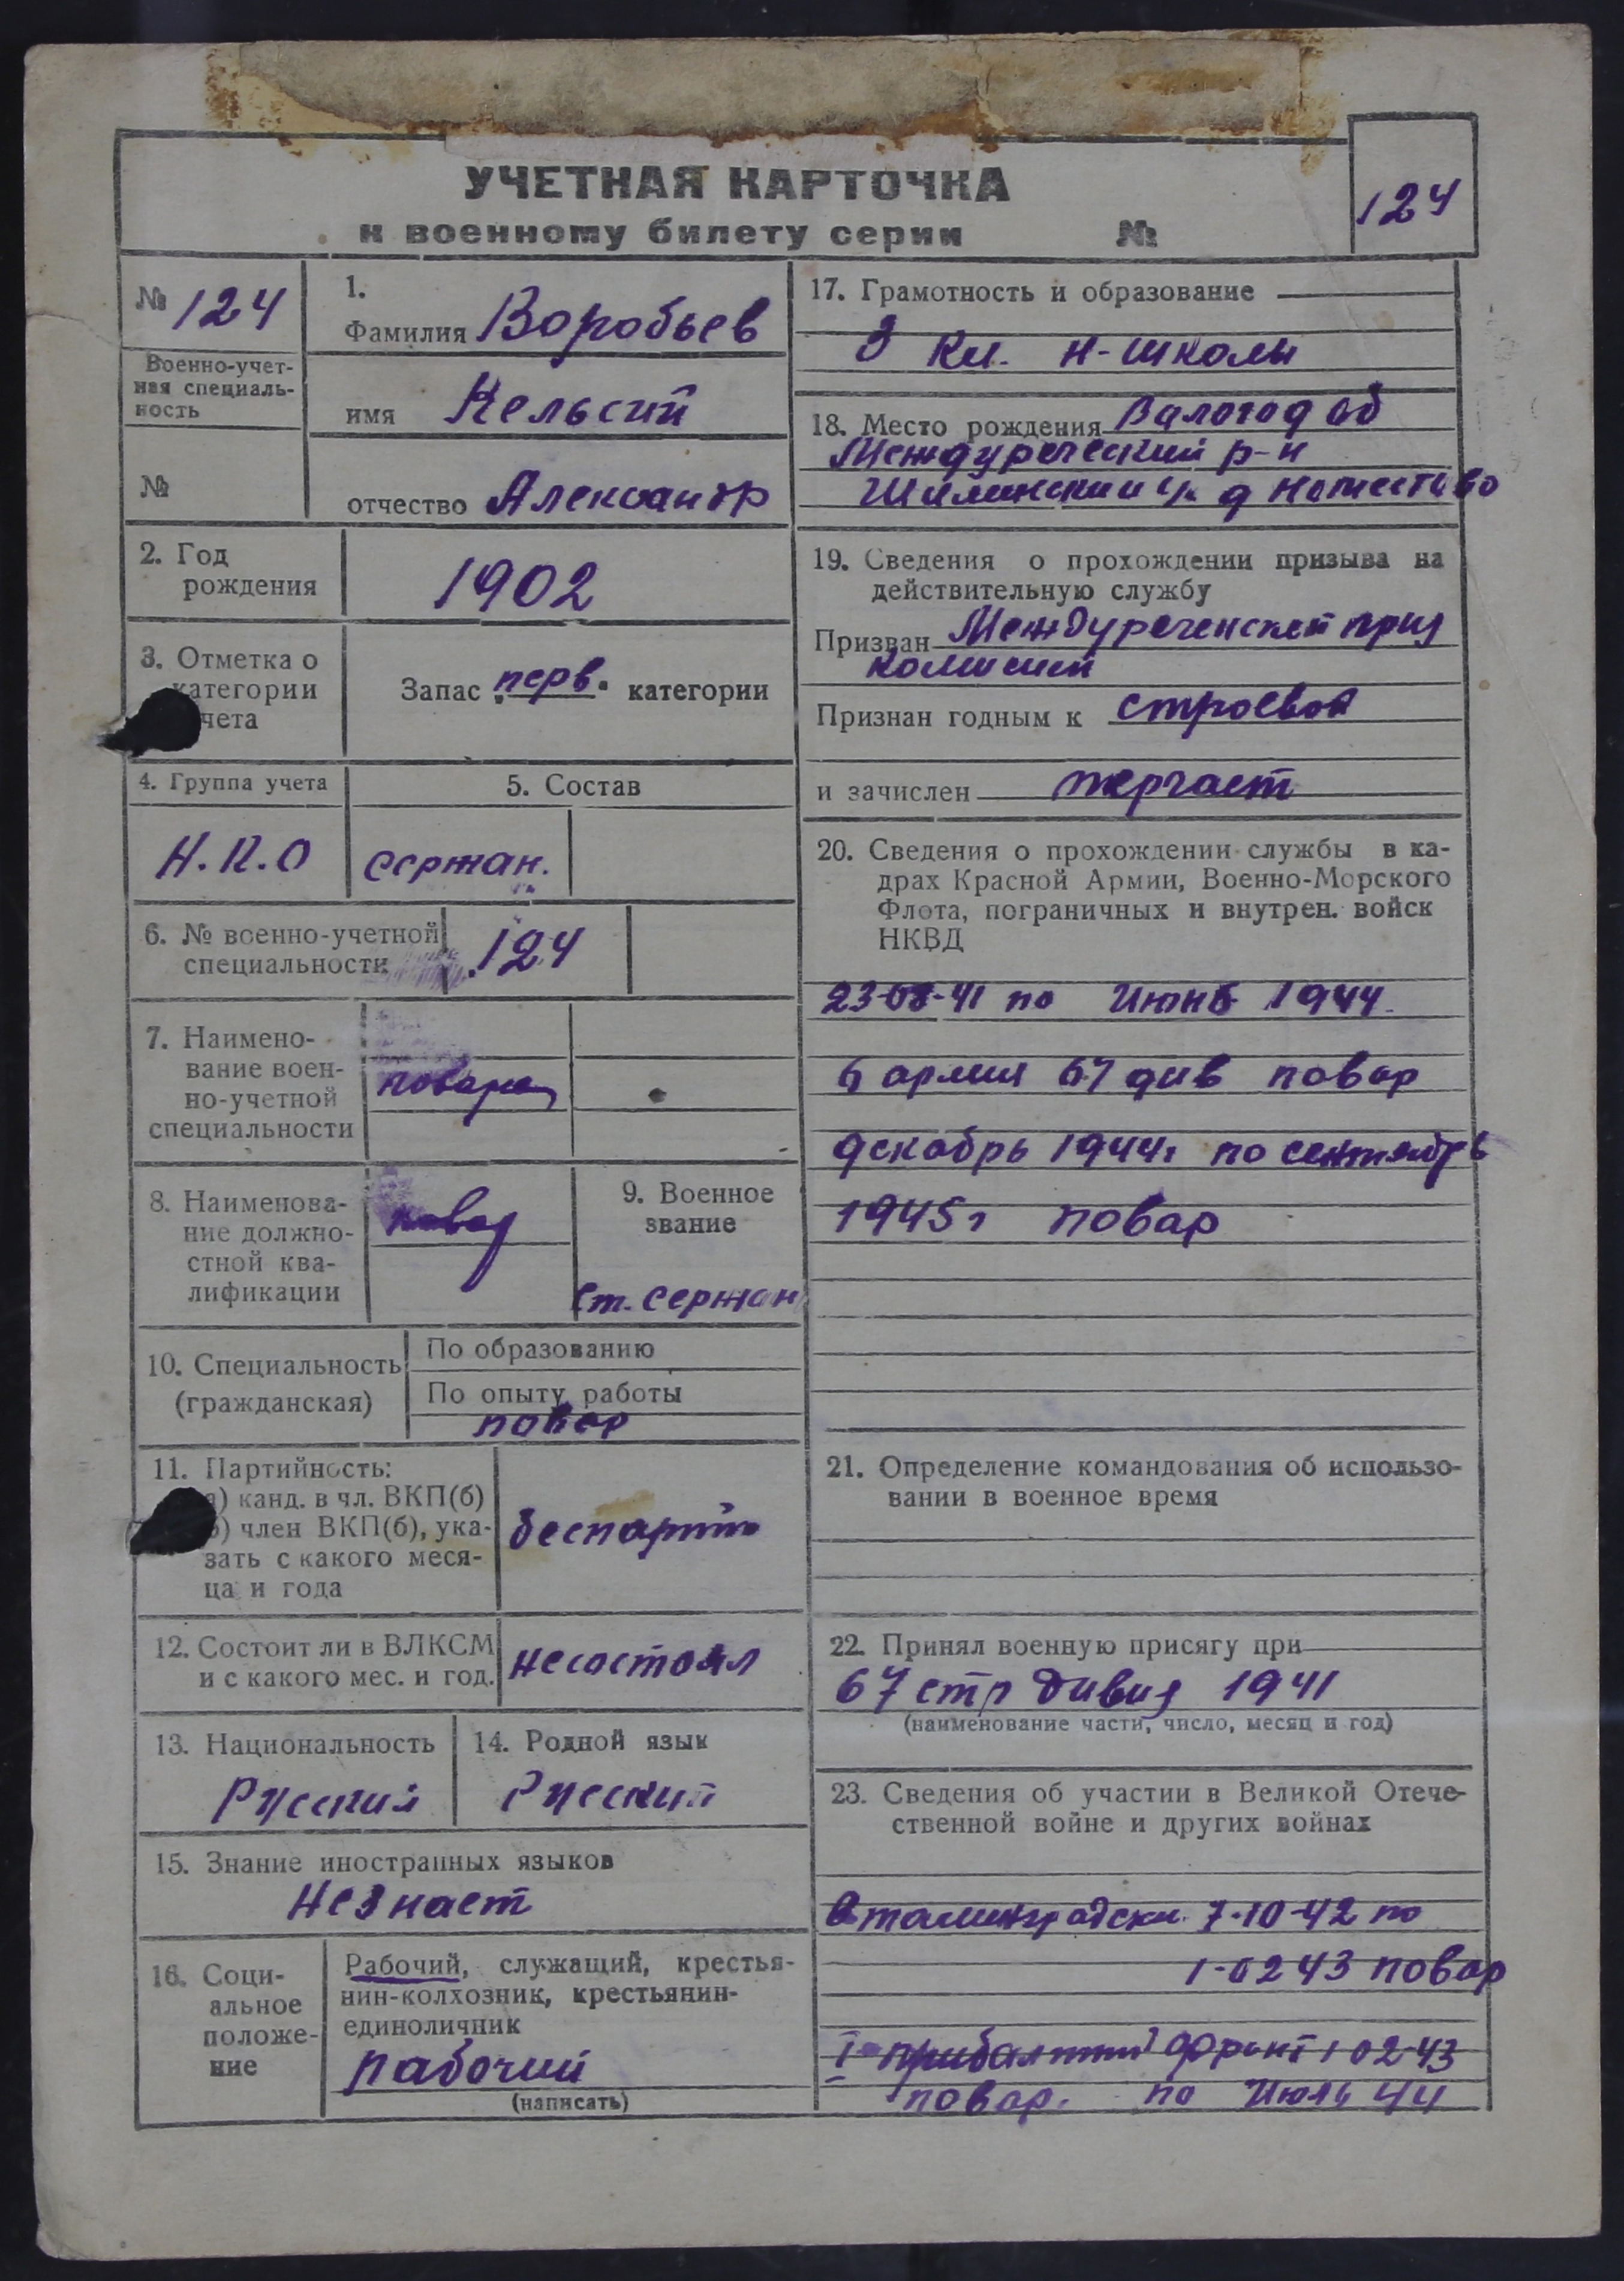 УЧЕТНАЯ КАРТОЧКА
к военному билету серии №
124
№ 124
Военно-учет-
ная специаль-
ность
№
1.
Фамилия Воробьев
имя Кельсий
отчество Александр
2. Год
рождения
1902
3. Отметка о
категории
чета
Запас перв. категории
4. Группа учета
Н.К.О
5. Состав
сержан.
6. № военно-учетной
специальности
124
7. Наимено-
вание воен-
но-учетной
специальности
повара
8. Наименова-
ние должно-
стной ква-
лификации
повар
9. Военное
звание
Ст. сержан
10. Специальность
(гражданская)
По образованию
По опыту работы
повар
11. Партийность:
а) канд. в чл. ВКП(б)
б) член ВКП(б), ука-
зать с какого меся-
ца и года
беспартий
12. Состоит ли в ВЛКСМ
и с какого мес. и год.
несостоял
13. Национальность
Русский
14. Родной язык
Русский
15. Знание иностранных языков
Незнает
16. Соци-
альное
положе-
ние
Рабочий, служащий, крестья-
нин-колхозник, крестьянин-
единоличник
рабочий
(написать)
17. Грамотность и образование
3 кл. н-школы
18. Место рождения Валогод об
Междуреческий р-н
д
19. Сведения о прохождении призыва на
действительную службу
Призван Междуреченской приз
комисией
Признан годным к строевой
и зачислен
20. Сведения о прохождении службы в ка-
драх Красной Армии, Военно-Морского
Флота, пограничных и внутрен. войск
НКВД
23-08-41 по Июнь 1944
6 армия 67 див повар
декабрь 1944г по сентябрь
1945г повар
21. Определение командования об использо-
вании в военное время
22. Принял военную присягу при
67 стр дивиз 1941
(наименование части, число, месяц и год)
23. Сведения об участии в Великой Отече-
ственной войне и других войнах
Сталинградски 7-10-42 по
1-02 43 повар
I прибалтий фронт 1 02-43
повар. по Июль 44